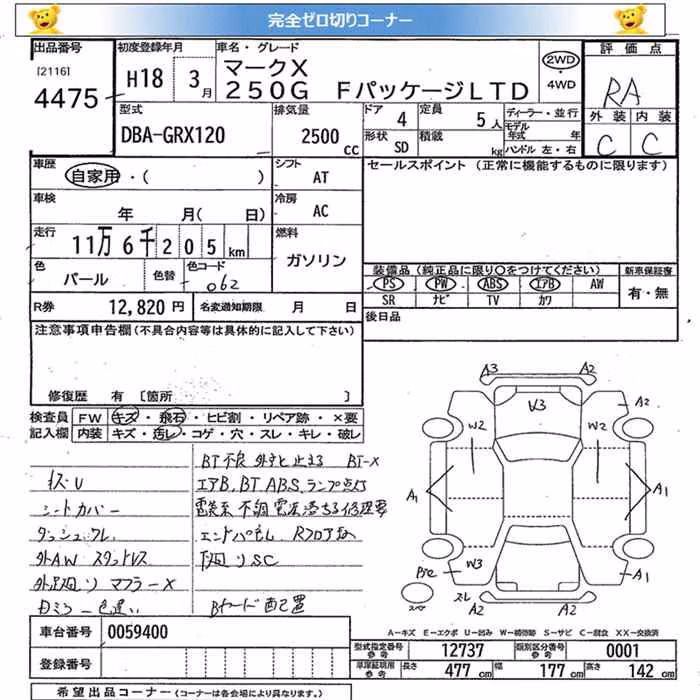 完全ゼロ切りコーナー
出品番号 初度登録年月 車名・グレード 評価点
[2116]
4475 H18 3月 マークX 2WD・4WD RA
250G FパッケージLTD
型式 排気量 ドア 4 定員 5人 ディーラー・並行 外装 内装
DBA-GRX120 2500cc 形状 SD 積載 kg モデル年式 年
ハンドル 左・右 C C
車歴 シフト セールスポイント (正常に機能するものに限ります)
自家用・( ) AT
車検 冷房
年 月( 日) AC
走行 燃料
11万6千205km ガソリン
色 色替 色コード 装備品(純正品に限り○をつけてください) 新車保証書
パール 062 PS PW ABS エアB AW 有・無
SR ナビ TV カワ
R券 12,820円 名変通知期限 月 日 後日品
注意事項申告欄(不具合内容等は具体的に記入して下さい)
修復歴 有 [箇所 ]
検査員 FW キズ・飛石・ヒビ割・リペア跡・×要
記入欄 内装 キズ・汚レ・コゲ・穴・スレ・キレ・破レ
BT不良 BT-X
キズU エアB, BT ABS, ランプ点灯
シートカバー 電装系 不調
ダッシュ エンドパネル Rフロア
外AW スタッドレス 下廻りSC
外足廻り マフラーX
A3 A2
V3 A2
W2 W2
A1 A1
W3
A2 A2 A1
車台番号 0059400 A-キズ E-エクボ U-凹み W-補修跡 S-サビ C-腐食 XX-交換済
登録番号 型式指定番号 参考 12737 類別区分番号 参考 0001
車庫証明用 参考 長さ 477cm 幅 177cm 高さ 142cm
希望出品コーナー(コーナーは各会場により異なります。)